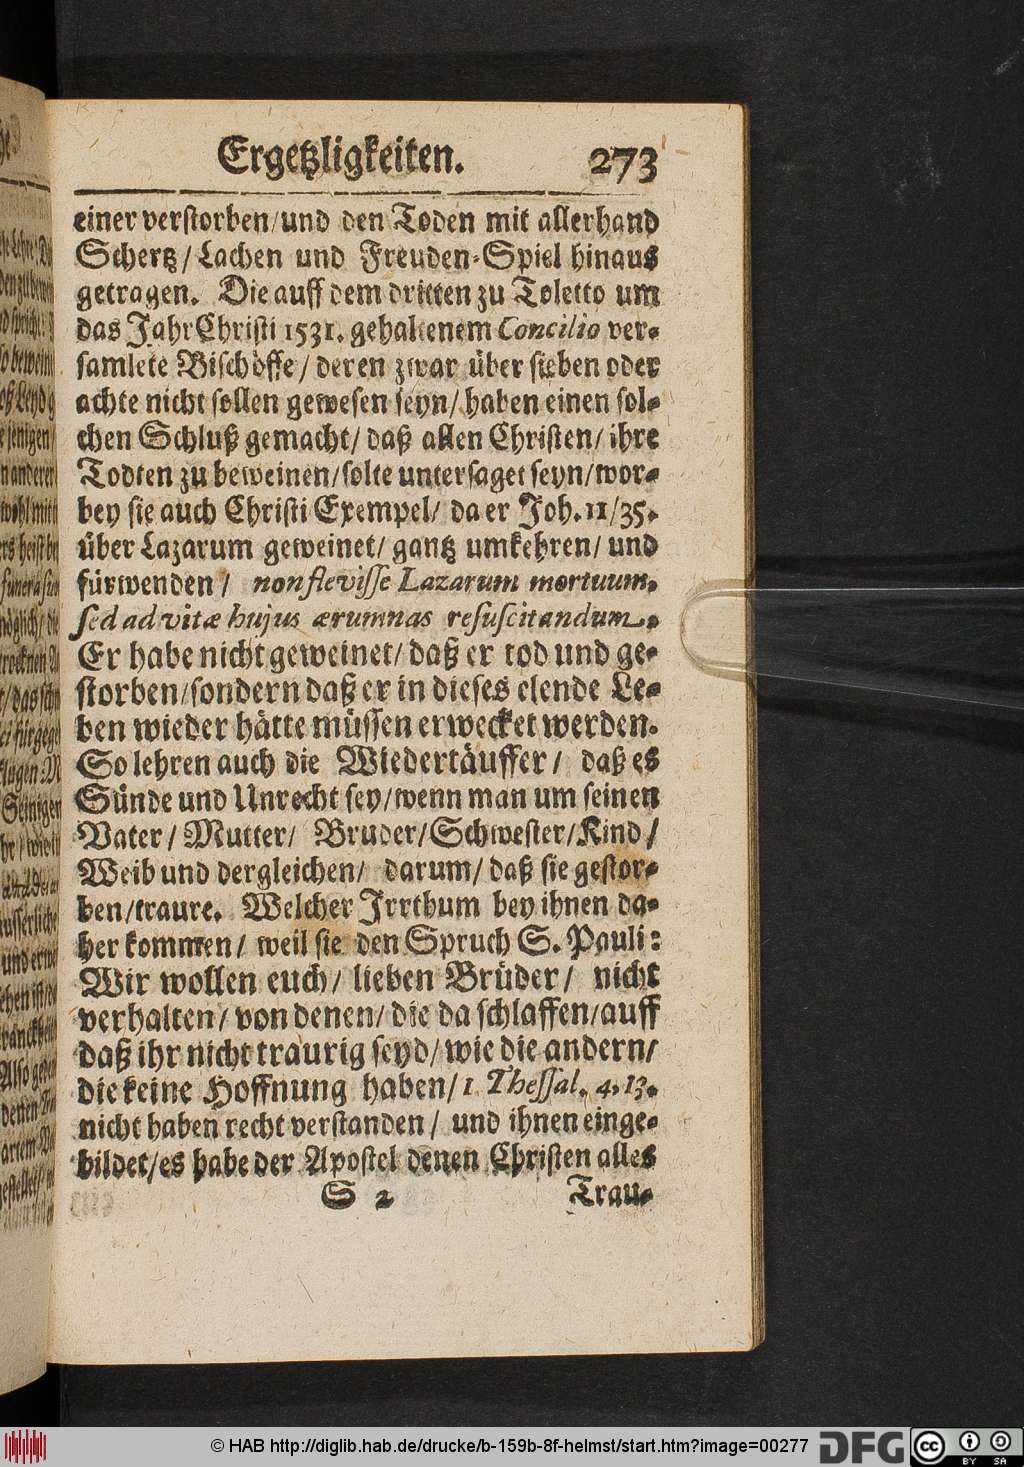 Ergetzligkeiten. 273
einer verstorben/und den Toden mit allerhand
Schertz/ Lachen und Freuden-Spiel hinaus
getragen. Die auff dem dritten zu Toletto um
das Jahr Christi 1531. gehaltenem Concilio ver-
samlete Bischöffe/ deren zwar über sieben oder
achte nicht sollen gewesen seyn/ haben einen sol-
chen Schluß gemacht/ daß allen Christen/ ihre
Todten zu beweinen/solte untersaget seyn/wor-
bey sie auch Christi Exempel/ da er Joh. 11/35.
über Lazarum geweinet/ gantz umkehren/ und
fürwenden/ non flevisse Lazarum mortuum,
sed ad vitæ hujus ærumnas resuscitandum.
Er habe nicht geweinet/ daß er tod und ge-
storben/sondern daß er in dieses elende Le-
ben wieder hätte müssen erwecket werden.
So lehren auch die Wiedertäuffer/ daß es
Sünde und Unrecht sey/wenn man um seinen
Vater/ Mutter/ Bruder/Schwester/Kind/
Weib und dergleichen/ darum/ daß sie gestor-
ben/traure. Welcher Irrthum bey ihnen da-
her kommen/ weil sie den Spruch S. Pauli:
Wir wollen euch/ lieben Brüder/ nicht
verhalten/ von denen/ die da schlaffen/auff
daß ihr nicht traurig seyd/wie die andern/
die keine Hoffnung haben/1 Thessal. 4. 13.
nicht haben recht verstanden/ und ihnen einge-
bildet/es habe der Apostel denen Christen alles
S 2 Trau-
© HAB http://diglib.hab.de/drucke/b-159b-8f-helmst/start.htm?image=00277
DFG
cc BY SA